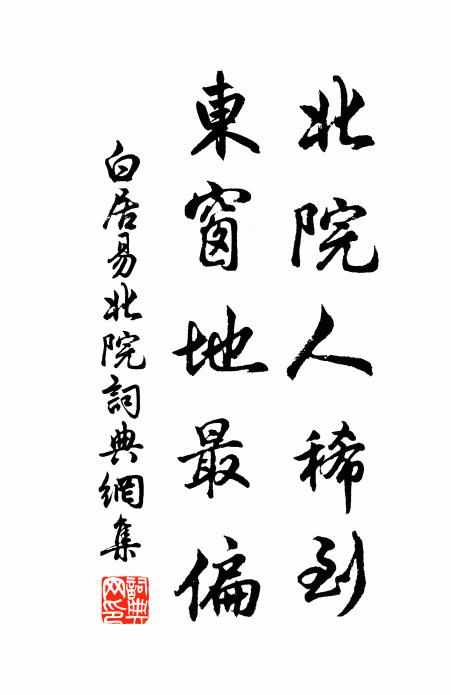 北院人稀到
東窗地最偏
白居易北院詞典網集
詞典網印